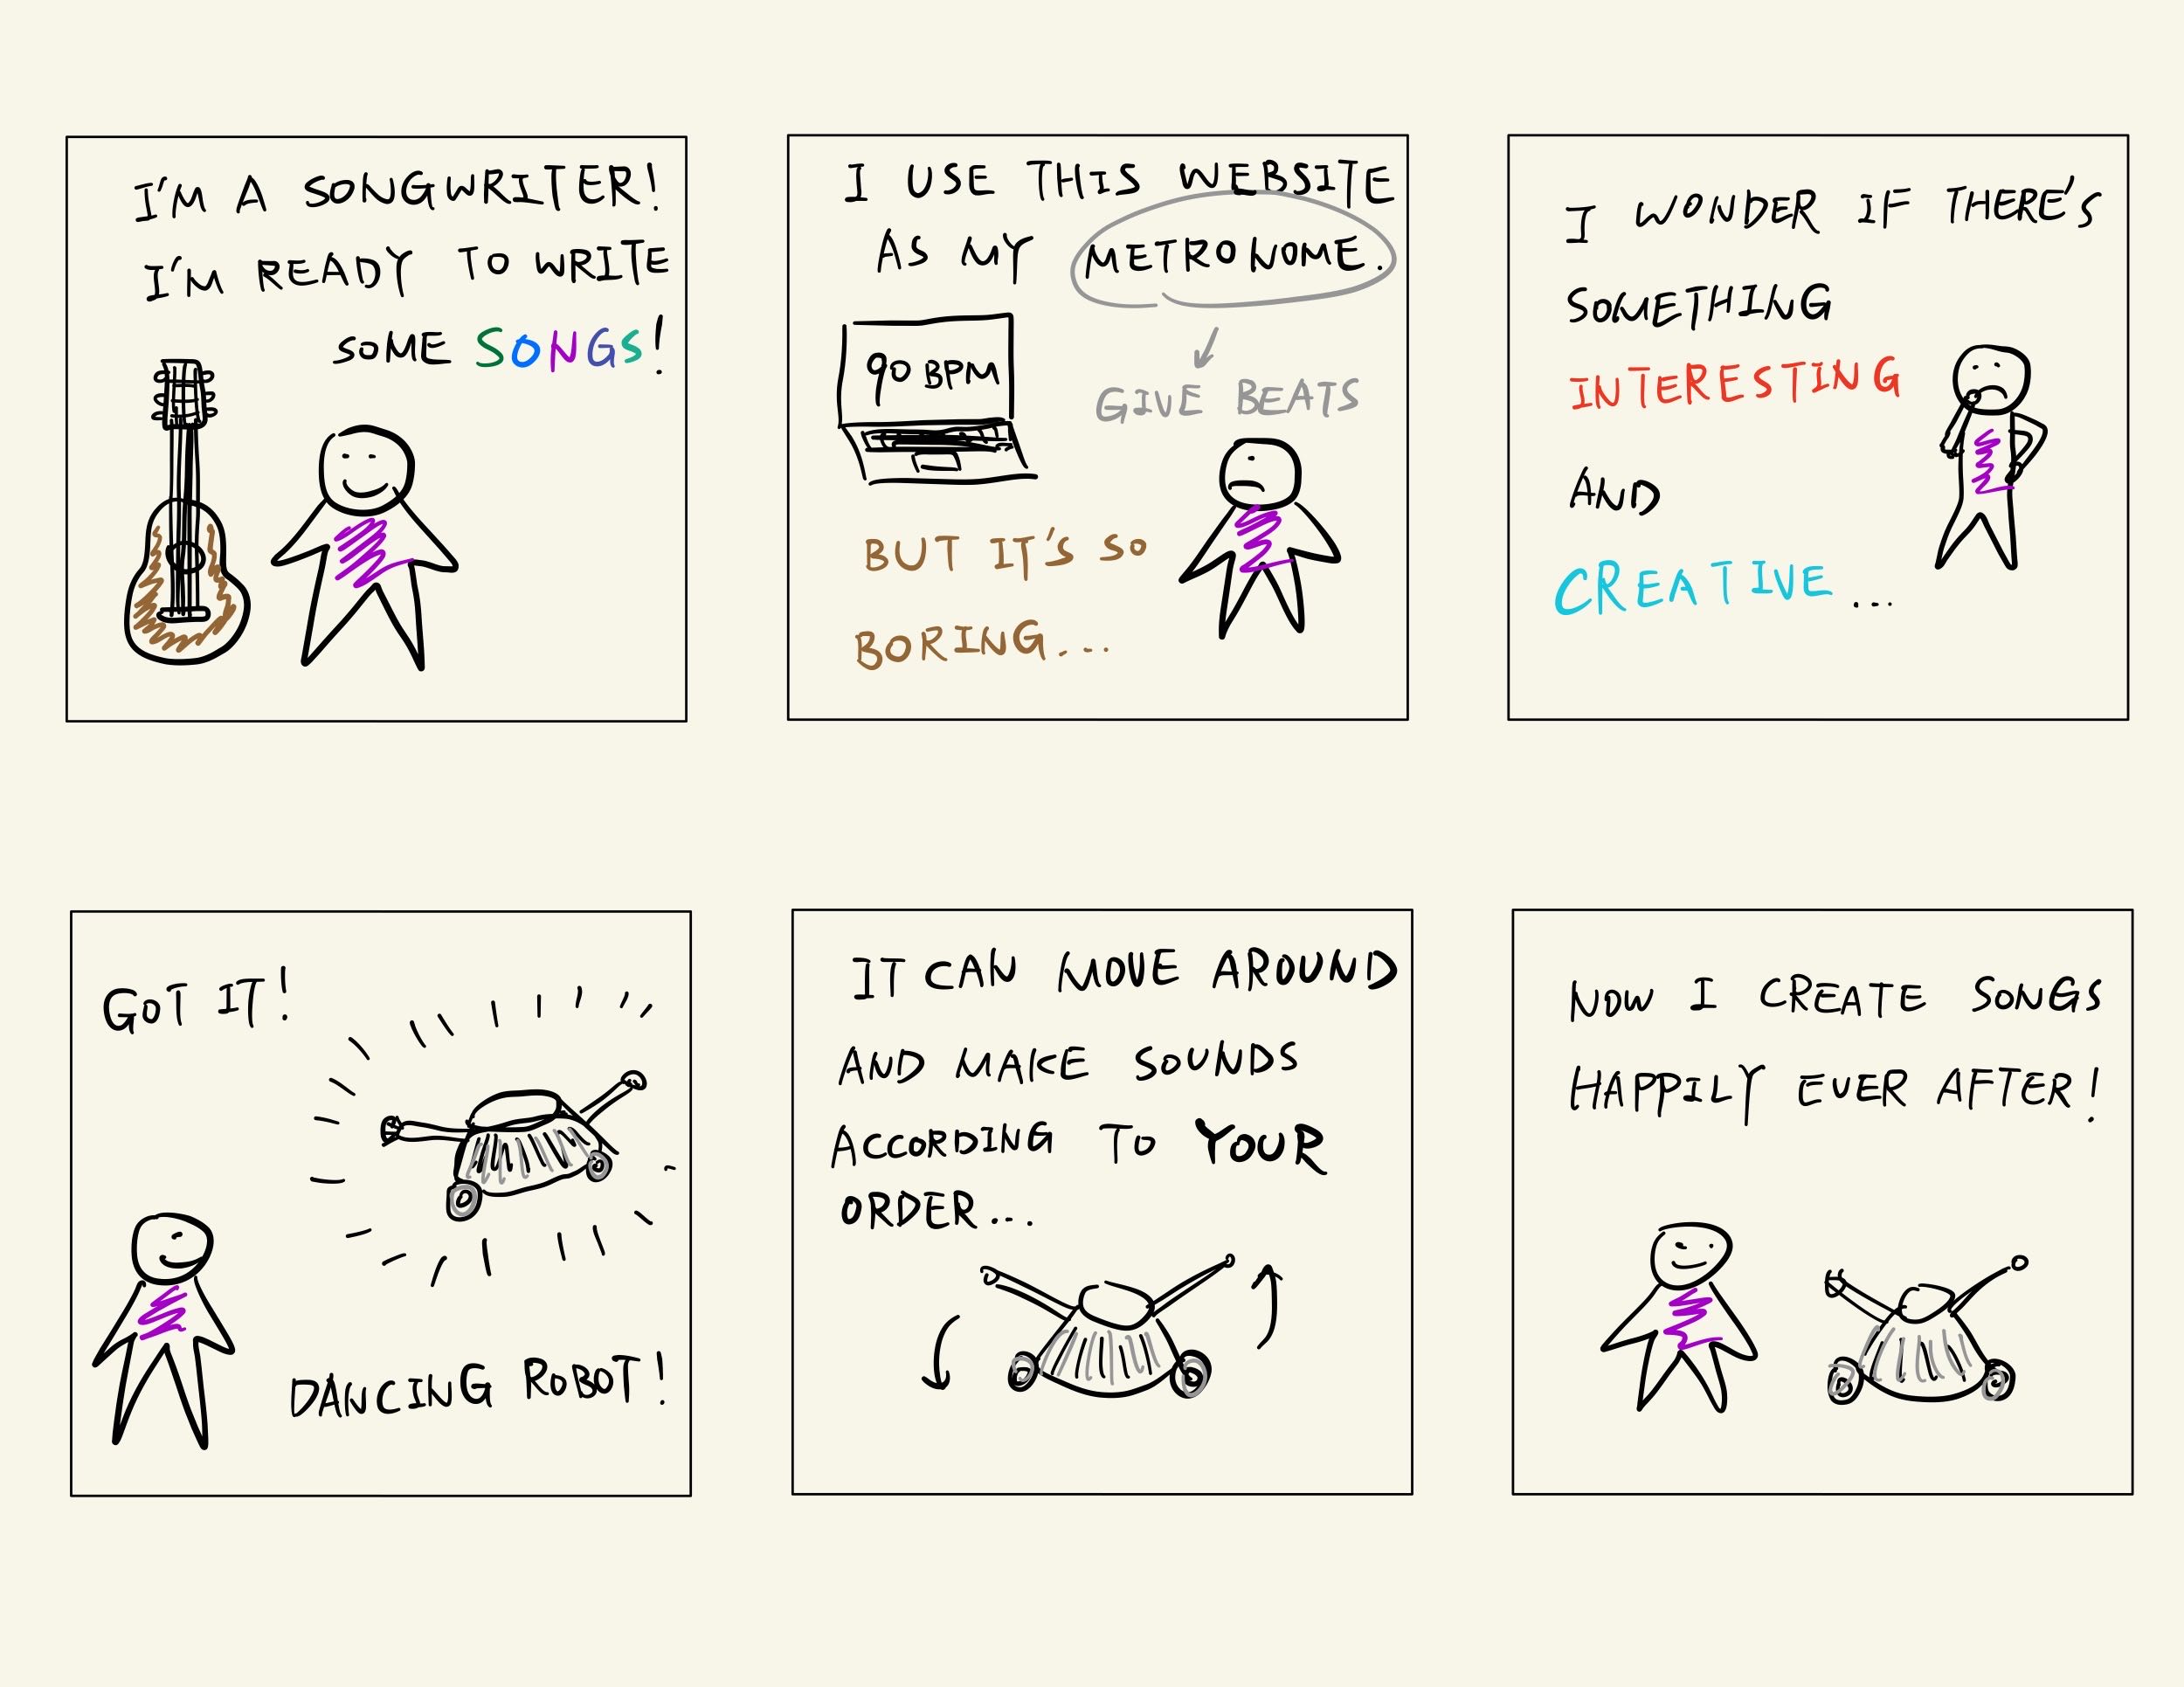 I'M A SONGWRITER!
I'M READY TO WRITE
SOME SONGS!
I USE THIS WEBSITE
AS MY METRONOME.
90 BPM
GIVE BEATS
BUT IT'S SO
BORING...
I WONDER IF THERE'S
SOMETHING
INTERESTING
AND
CREATIVE...
GOT IT!
DANCING ROBOT!
IT CAN MOVE AROUND
AND MAKE SOUNDS
ACCORDING TO YOUR
ORDER...
NOW I CREATE SONGS
HAPPILY EVER AFTER!